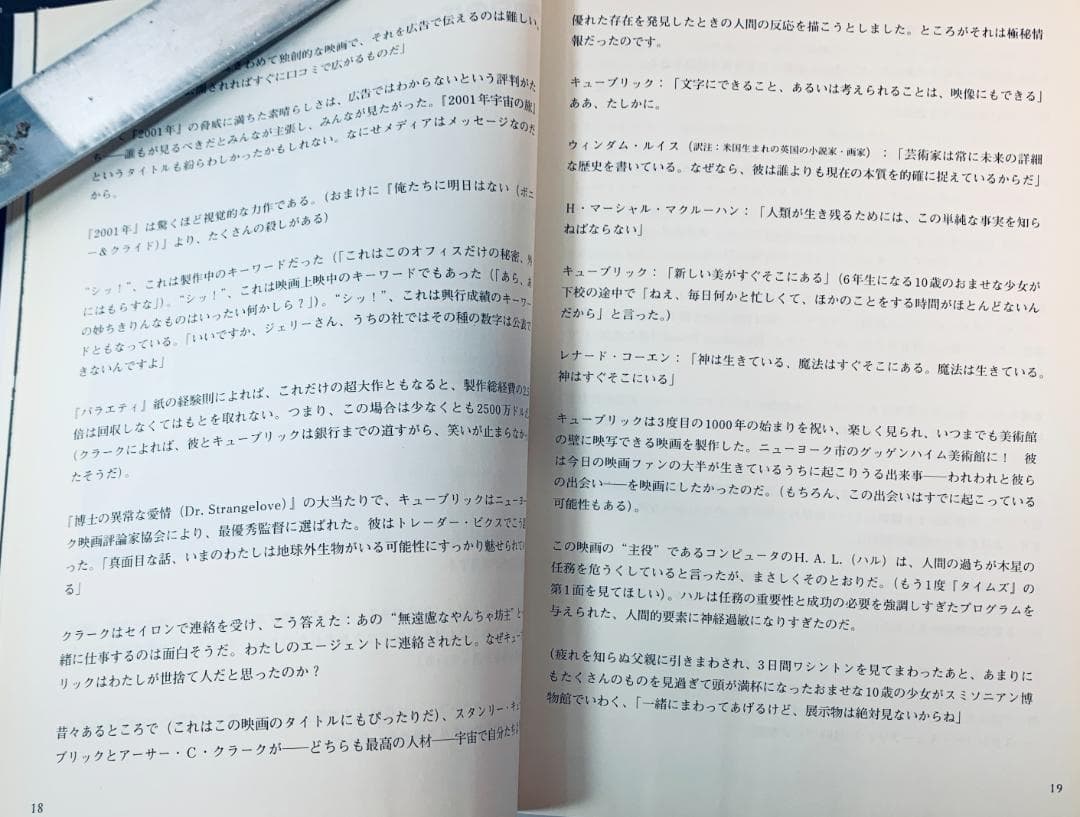 さわめて独創的な映画で、それを広告で伝えるのは難しい。
開されればすぐに口コミで広がるものだ」
『2001年』の脅威に満ちた素晴らしさは、広告ではわからないという評判がた
――誰もが見るべきだとみんなが主張し、みんなが見たがった。『2001年宇宙の旅』
というタイトルも紛らわしかったかもしれない。なにせメディアはメッセージなのだ
から。
『2001年』は驚くほど視覚的な力作である。(おまけに『俺たちに明日はない(ボニ
ー＆クライド)』より、たくさんの殺しがある)
“シッ！”、これは製作中のキーワードだった(「これはこのオフィスだけの秘密、外
にはもらすな」)。“シッ！”、これは映画上映中のキーワードでもあった(「あら、あ
の妙ちきりんなものはいったい何かしら？」)。“シッ！”、これは興行成績のキーワー
ドともなっている。「いいですか、ジェリーさん、うちの社ではその種の数字は公表で
きないんですよ」
『バラエティ』紙の経験則によれば、これだけの超大作ともなると、製作総経費の2.5
倍は回収しなくてはもとを取れない。つまり、この場合は少なくとも2500万ドル
(クラークによれば、彼とキューブリックは銀行までの道すがら、笑いが止まらなかっ
たそうだ)。
『博士の異常な愛情(Dr. Strangelove)』の大当たりで、キューブリックはニューヨー
ク映画評論家協会により、最優秀監督に選ばれた。彼はトレーダー・ビクスでこう
った。「真面目な話、いまのわたしは地球外生物がいる可能性にすっかり魅せられてい
る」
クラークはセイロンで連絡を受け、こう答えた：あの“無遠慮なやんちゃ坊主”と
緒に仕事するのは面白そうだ。わたしのエージェントに連絡されたし。なぜキュー
リックはわたしが世捨て人だと思ったのか？
昔々あるところで(これはこの映画のタイトルにもぴったりだ)、スタンリー・キュ
ブリックとアーサー・C・クラークが――どちらも最高の人材――宇宙で自分たち
18
優れた存在を発見したときの人間の反応を描こうとしました。ところがそれは極秘情
報だったのです。
キューブリック：「文字にできること、あるいは考えられることは、映像にもできる」
ああ、たしかに。
ウィンダム・ルイス(訳注：米国生まれの英国の小説家・画家)：「芸術家は常に未来の詳細
な歴史を書いている。なぜなら、彼は誰よりも現在の本質を的確に捉えているからだ」
H・マーシャル・マクルーハン：「人類が生き残るためには、この単純な事実を知ら
ねばならない」
キューブリック：「新しい美がすぐそこにある」(6年生になる10歳のおませな少女が
下校の途中で「ねえ、毎日何かと忙しくて、ほかのことをする時間がほとんどないん
だから」と言った。)
レナード・コーエン：「神は生きている、魔法はすぐそこにある。魔法は生きている。
神はすぐそこにいる」
キューブリックは3度目の1000年の始まりを祝い、楽しく見られ、いつまでも美術館
の壁に映写できる映画を製作した。ニューヨーク市のグッゲンハイム美術館に！　彼
は今日の映画ファンの大半が生きているうちに起こりうる出来事――われわれと彼ら
の出会い――を映画にしたかったのだ。(もちろん、この出会いはすでに起こっている
可能性もある)。
この映画の“主役”であるコンピュータのH. A. L.(ハル)は、人間の過ちが木星の
任務を危うくしていると言ったが、まさしくそのとおりだ。(もう1度『タイムズ』の
第1面を見てほしい)。ハルは任務の重要性と成功の必要を強調しすぎたプログラムを
与えられた、人間的要素に神経過敏になりすぎたのだ。
(疲れを知らぬ父親に引きまわされ、3日間ワシントンを見てまわったあと、あまりに
もたくさんのものを見過ぎて頭が満杯になったおませな10歳の少女がスミソニアン博
物館でいわく、「一緒にまわってあげるけど、展示物は絶対見ないからね」
19